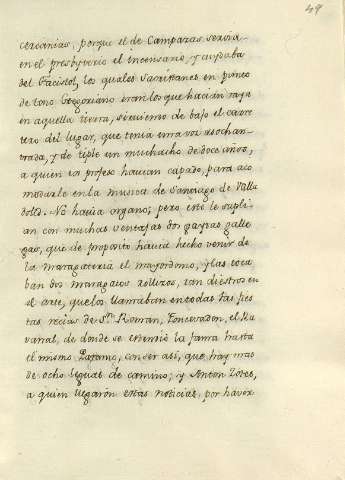 49
cercanias, porque el de Campazas servia
en el presbyterio el incensario, y ayudaba
del Facistol, los quales Sacristanes en punto
de tono Gregoriano eran los que hacian raya
en aquella tierra, sirviendo de bajo el carre
tero del lugar, que tenia una voz asochan
trada, y de tiple un muchacho de doce años,
a quien ex profeso havian capado, para aco
modarle en la musica de Santiago de Valla
dolid. No havia organo; pero este le suplí
an con muchas ventajas dos gaytas galle
gas, que de proposito havia hecho venir de
la maragateria el mayordomo, y las toca
ban dos maragatos rollizos, tan diestros en
el arte, que los llamaban en todas las fies
tas recias de Sn. Roman, Foncevadon, el Ra
vanal, de donde se estendió la fama hasta
el mismo Páramo, con ser así, que hay mas
de ocho leguas de camino; y Anton Zotes,
a quien llegaron estas noticias, por haver